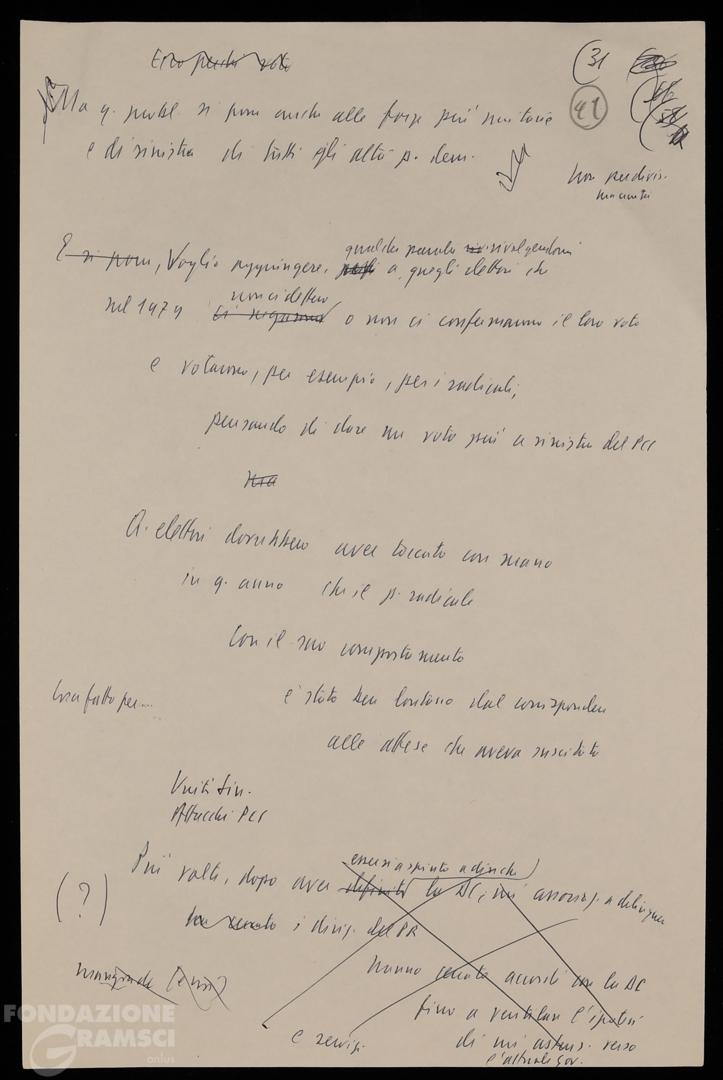 Ecco perché voto
(31
41
Ma q. probl. si pone anche alle forze più unitarie
e di sinistra di tutti gli altri p. dem.
Non per divis.
E si pone, Voglio aggiungere, qualche parola rivolgendomi
a quegli elettori che
nel 1979 non ci dettero
o non ci confermarono il loro voto
e votarono, per esempio, per i radicali,
pensando di dare un voto più a sinistra del PCI
ma
Q. elettori dovrebbero aver toccato con mano
in q. anno che il p. radicale
con il suo comportamento
Cosa fatto per...
è stato ben lontano dal corrispondere
alle attese che aveva suscitato
Unità sin.
Attacchi PCI
Più volte, dopo aver definito la DC, un' assoraz. a delinquere
(?)
i dirig. del PR
hanno cercato accordi con la DC
fino a ventilare l'ipotesi
e servizi
di un' astens. verso
l'attuale gov.
FONDAZIONE
GRAMSCI
onlus